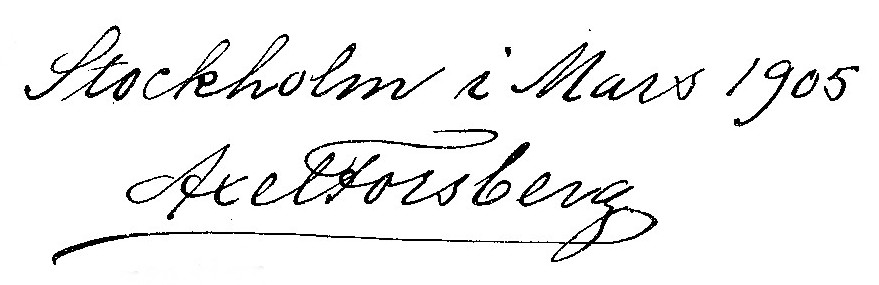 Stockholm i Mars 1905
Axel Forsberg